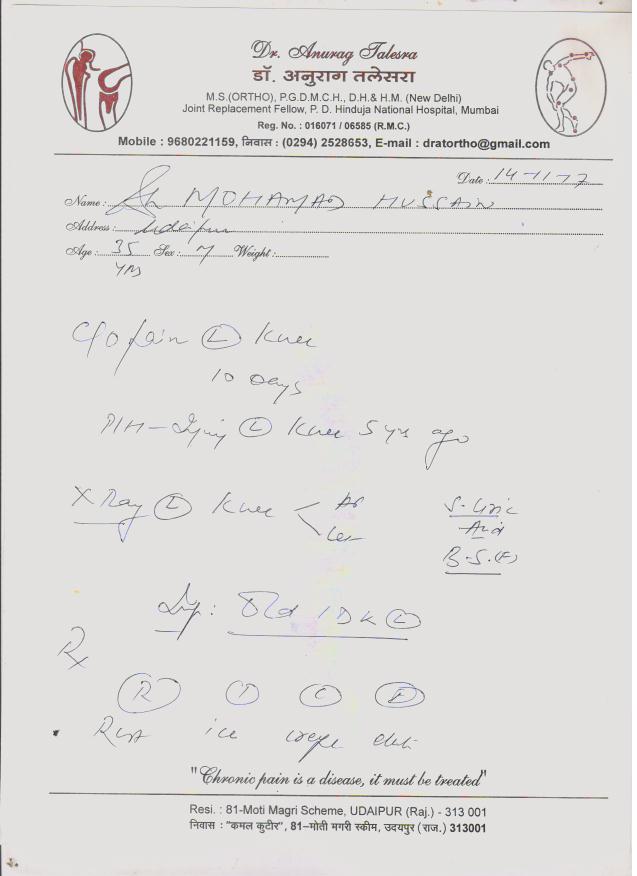 Dr. Anurag Talesra
डॉ. अनुराग तलेसरा
M.S.(ORTHO), P.G.D.M.C.H., D.H.& H.M. (New Delhi)
Joint Replacement Fellow, P. D. Hinduja National Hospital, Mumbai
Reg. No. : 016071 / 06585 (R.M.C.)
Mobile : 9680221159, निवास : (0294) 2528653, E-mail : dratortho@gmail.com
Date : 14-11-17
Name : Sh MOHAMAD HUSSAIN
Address : Udaipur
Age : 35 Sex : M Weight :
yrs
C/o Pain (L) Knee
10 Days
P/H - Injury (L) Knee 5 yrs ago
X Ray (L) Knee AP
Lat
S. Uric
Acid
B.S.(F)
Imp : Old IDK (L)
Rx
R I C E
Rest ice crepe
"Chronic pain is a disease, it must be treated"
Resi. : 81-Moti Magri Scheme, UDAIPUR (Raj.) - 313 001
निवास : "कमल कुटीर", 81-मोती मगरी स्कीम, उदयपुर (राज.) 313001